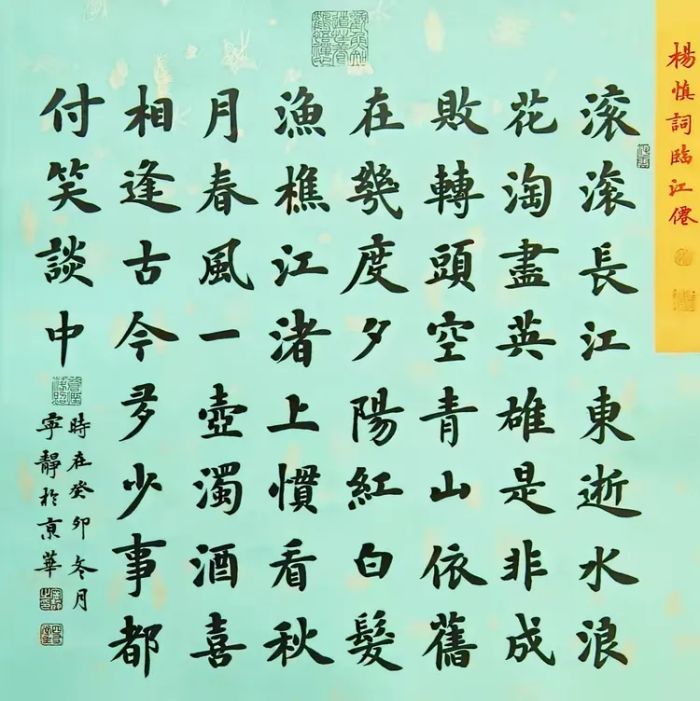 楊慎詞臨江僊
滚滚長江東逝水浪
花淘盡英雄是非成
敗轉頭空青山依舊
在幾度夕陽紅白髮
漁樵江渚上慣看秋
月春風一壺濁酒喜
相逢古今多少事都
付笑談中
時在癸卯冬月
寧靜於京華